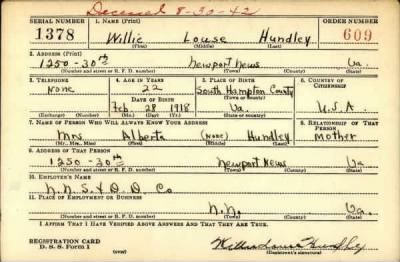 Deceased 8-30-42
SERIAL NUMBER 1. NAME (Print) ORDER NUMBER
1378 Willie Louse Hundley 609
(First) (Middle) (Last)
2. ADDRESS (Print)
1250-30th Newport News Va.
(Number and street or R. F. D. number) (Town) (County) (State)
3. TELEPHONE 4. AGE IN YEARS 5. PLACE OF BIRTH 6. COUNTRY OF CITIZENSHIP
None 22 South Hampton County
DATE OF BIRTH (Town or county)
Feb. 28 1918 Va. U.S.A.
(Exchange) (Number) (Mo.) (Day) (Yr.) (State or country)
7. NAME OF PERSON WHO WILL ALWAYS KNOW YOUR ADDRESS 8. RELATIONSHIP OF THAT PERSON
Mrs Alberta (none) Hundley Mother
(Mr., Mrs., Miss) (First) (Middle) (Last)
9. ADDRESS OF THAT PERSON
1250-30th Newport News Va
(Number and street or R. F. D. number) (Town) (County) (State)
10. EMPLOYER'S NAME
N.N.S. & D.D. Co
11. PLACE OF EMPLOYMENT OR BUSINESS
N.N. Va.
(Number and street or R. F. D. number) (Town) (County) (State)
I AFFIRM THAT I HAVE VERIFIED ABOVE ANSWERS AND THAT THEY ARE TRUE.
REGISTRATION CARD
D. S. S. Form 1 (over) Willie Louse Hundley
(Registrant's signature)